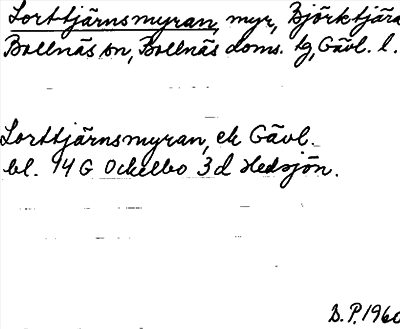 Lorttjärnsmyran, myr, Björktjära
Bollnäs sn, Bollnäs doms. tg, Gävl. l.
Lorttjärnsmyran, ek Gävl.
bl. 14 G Ockelbo 3d Hedsjön.
B.P. 1960